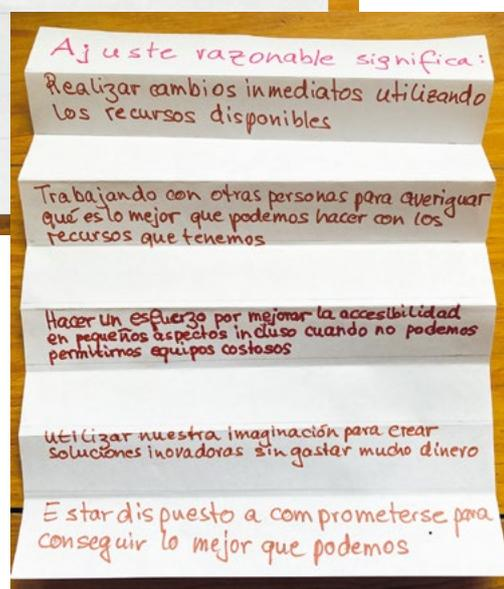 Ajuste razonable significa:
Realizar cambios inmediatos utilizando
los recursos disponibles
Trabajando con otras personas para averiguar
qué es lo mejor que podemos hacer con los
recursos que tenemos
Hacer un esfuerzo por mejorar la accesibilidad
en pequeños aspectos incluso cuando no podemos
permitirnos equipos costosos
utilizar nuestra imaginación para crear
soluciones inovadoras sin gastar mucho dinero
Estar dispuesto a comprometerse para
conseguir lo mejor que podemos